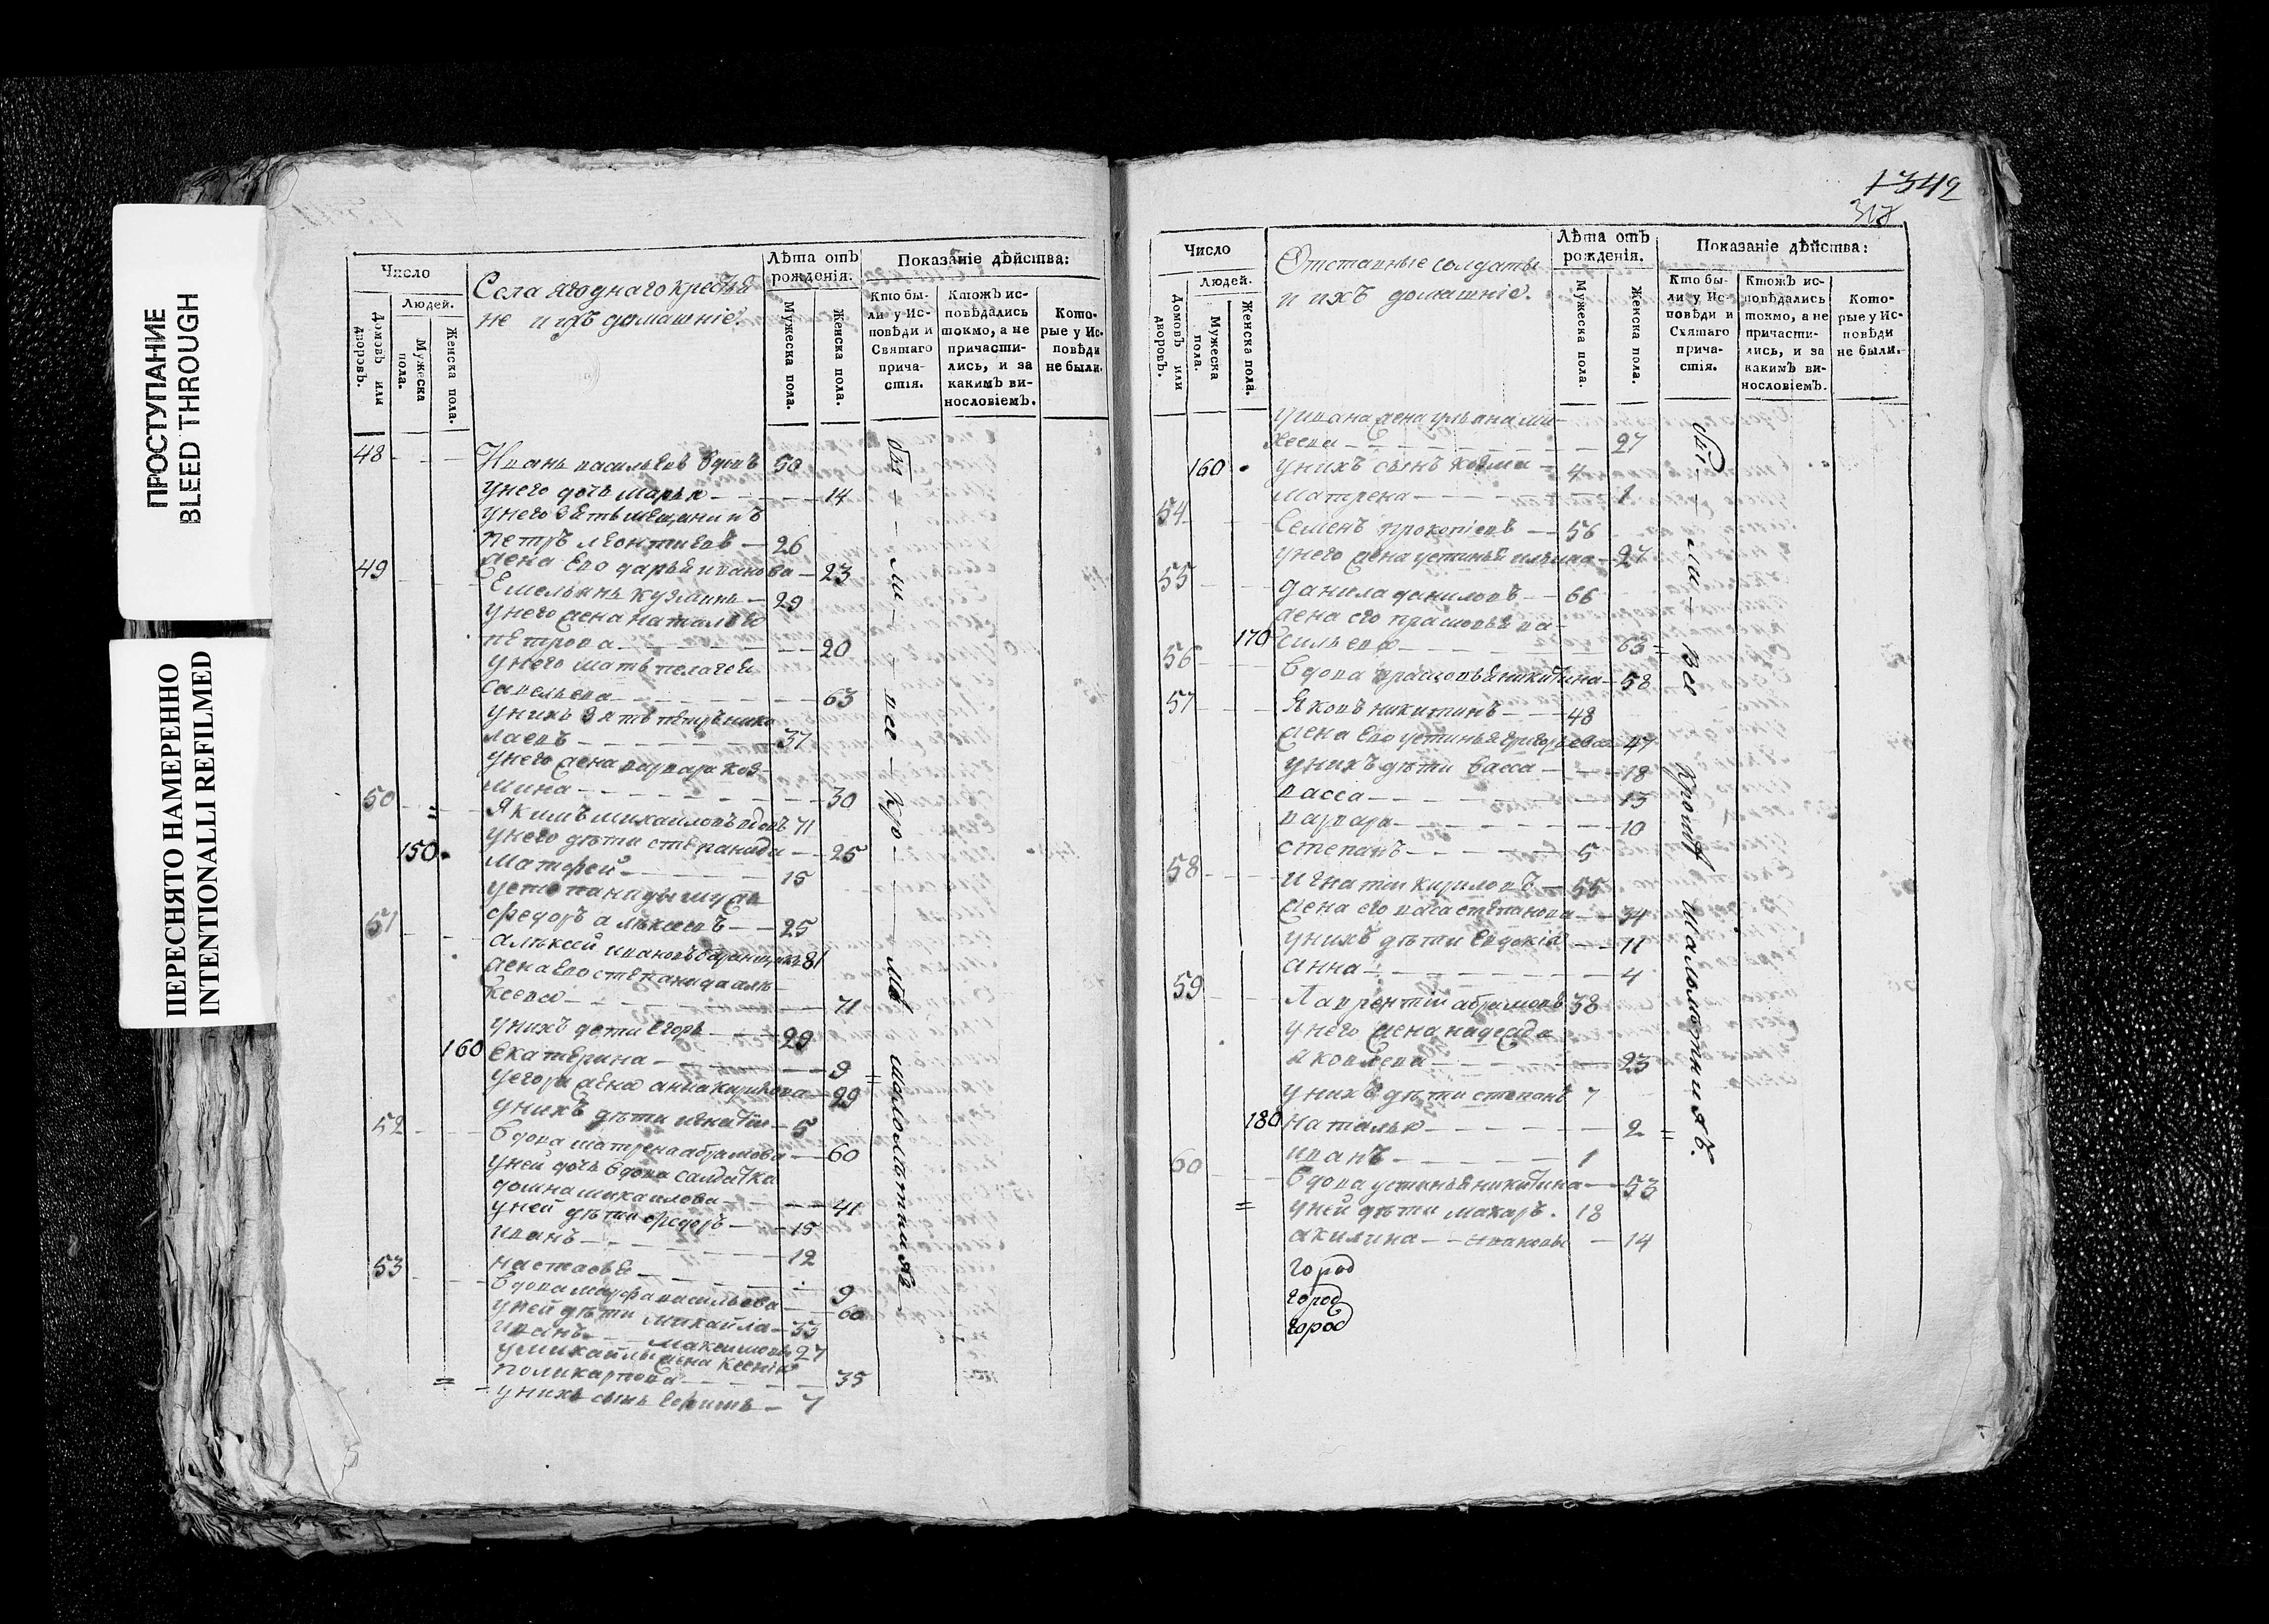 ПРОСТУПАНИЕ
BLEED THROUGH
ПЕРЕСНЯТО НАМЕРЕННО
INTENTIONALLI REFILMED
Число
Людей.
Домовъ или дворовъ.
Мужеска пола.
Женска пола.
Села Ягоднаго крестья
не и ихъ домашніе.
Лѣта отъ рожденія.
Мужеска пола.
Женска пола.
Показаніе дѣйства:
Кто бы-
ли у Ис-
повѣди и
Святаго
прича-
стія.
Ктожъ ис-
повѣдались
токмо, а не
причасти-
лись, и за
какимъ ви-
нословіемъ.
Кото-
рые у Ис-
повѣди
не были.
48 Иванъ васильевъ вдовъ 50
унего дочь марья 14
унего зять мещанинъ
петръ леонтиевъ 26
жена Его дарья иванова 23
49 Емельянъ кузминъ 29
унего жена наталья
петрова 20
унего мать пелагея
савельева 63
унихъ зять петръ нико
лаевъ 37
унего жена варвара коз-
мина 30
50 Якимъ михайловъ вдовъ 71
унего дѣти степанида 25
150 Матфей 15
устепаниды мужъ
федоръ алѣксеевъ 25
51 алѣксей ивановъ 81
жена Его степанида алѣ-
ксеева 71
унихъ дети Егоръ 29
160 Екатерина 9
уегора жена анна 29
унихъ дѣти игнатіи 5
52 вдова матрена абрамова 60
уней дочь вдова салдатка
домна михаилова 41
уней дѣти федоръ 15
иванъ 12
настасья 9
53 вдова марфа васильева 60
уней дѣти михайла 33
иванъ максимовы 27
умихайлы жена ксенія
поликарпова 35
унихъ сынъ 7
бы - ли - все - кро - мѣ малолѣтнихъ
1342
318
Число
Людей.
Домовъ или дворовъ.
Мужеска пола.
Женска пола.
Отставные солдаты
и ихъ домашніе.
Лѣта отъ рожденія.
Мужеска пола.
Женска пола.
Показаніе дѣйства:
Кто бы-
ли у Ис-
повѣди и
Святаго
прича-
стія.
Ктожъ ис-
повѣдались
токмо, а не
причасти-
лись, и за
какимъ ви-
нословіемъ.
Кото-
рые у Ис-
повѣди
не были.
уивана жена ульяна ми-
хеева 27
160 унихъ сынъ козма 4
матрена 1
54 Семенъ прокопіевъ 56
унего жена устинья ильина 27
55 данила даниловъ 66
жена его прасковья ва-
170 сильева 63
56 вдова прасковья никитина 58
57 Яковъ никитинъ 48
жена Его устинья григорьева 47
унихъ дѣти васса 18
васса 13
варвара 10
степанъ 5
58 игнатіи кириловъ 55
жена его васа степанова 34
унихъ дѣти Евдокія 11
анна 4
59 Лаврентіи абрамовъ 38
унего жена надежда
яковлева 23
унихъ дѣти степанъ 7
180 наталья 2
иванъ 1
60 вдова устинья никитина 53
уней дѣти макаръ 18
акилина ивановы 14
город
город
город
бы - ли - все кромѣ малолѣтнихъ.